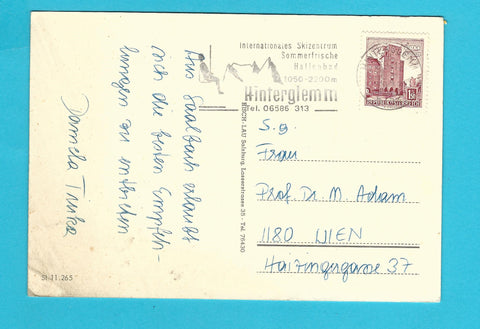 Internationales Skizentrum
Sommerfrische
Hallenbad
1050-2200m
Hinterglemm
Tel. 06586 313
REPUBLIK ÖSTERREICH
Aus Saalbach erlaubt
sich die besten Empfeh-
lungen zu entrichten
Daniela
S.g.
Frau
Prof. Dr. M. Adam
1180 WIEN
Haizingergasse 37
RISCH-LAU Salzburg, Lasserstrasse 35 - Tel. 76430
St 11.265